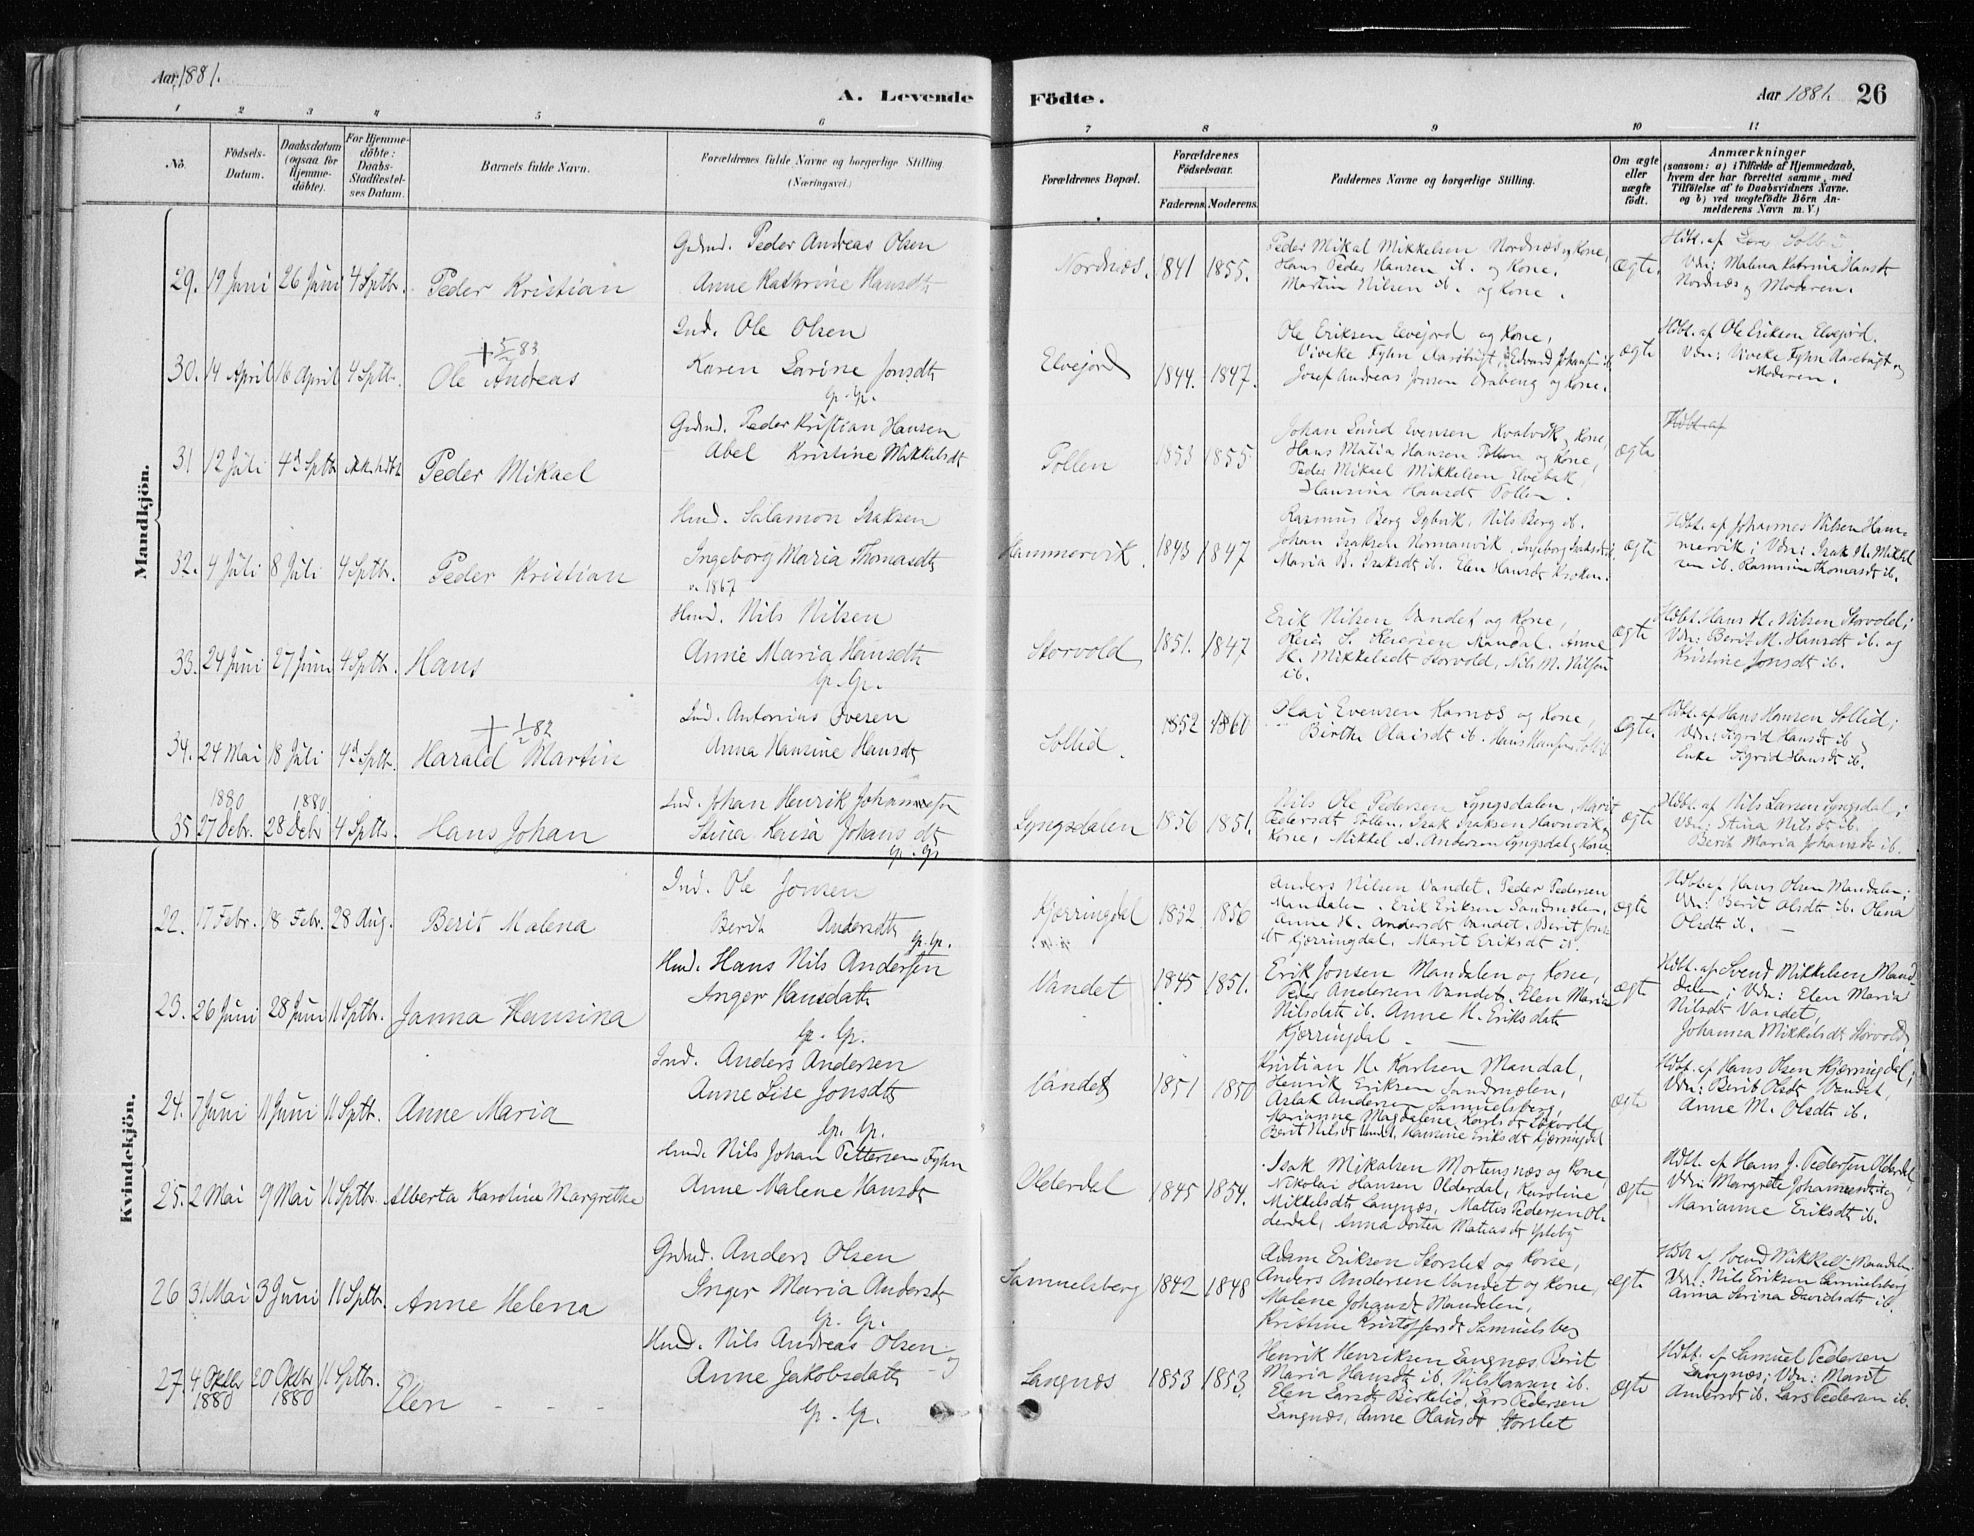 Aar 1881.
A. Levende
Födte.
Aar 1881. 26
1 2 3 4 5 6 7 8 9 10 11
No.
Födsels-Datum.
Daabsdatum (ogsaa for Hjemme-döbte).
For Hjemme-döbte: Daabs-Stadfæstel-ses Datum.
Barnets fulde Navn.
Forældrenes fulde Navne og borgerlige Stilling. (Næringsvei.)
Forældrenes Bopæl.
Forældrenes Födselsaar.
Faderens. Moderens.
Faddernes Navne og borgerlige Stilling.
Om ægte eller uægte födt.
Anmærkninger
(saasom: a) i Tilfælde af Hjemmedaab, hvem der har forrettet samme, med Tilföielse af to Daabsvidners Navne. og b) ved uægtefödte Börn An-melderens Navn m. V.)
Mandkjön.
29. 19 Juni 26 Juni 4 Sptbr. Peder Kristian
Grdmd. Peder Andreas Olsen
Anne Kathrine Hansdt
Nordnæs. 1841 1855.
Peder Mikal Mikkelsen Nordnæs og Kone,
Hans Peder Hansen ib. og Kone.
Martin Nilsen ib. og Kone.
ægte.
Hdbt. af
Vdn: Malena Katrina Hansdt
Nordnæs og Moderen.
30. 14 April 16 April 4 Sptbr. Ole Andreas
Ind. Ole Olsen
Karen Larine Jonsdt
Gp. Gp.
Elvejord 1844. 1847.
Ole Eriksen Elvejord og Kone,
Viveke Fyhn
Josef Andreas Jonsen og Kone.
ægte
Hdbt. af Ole Eriksen Elvejord.
Vdn: Viveke Fyhn og
Moderen.
31 12 Juli 4d Sptbr Peder Mikael
Grdmd. Peder Kristian Hansen
Abel Kristine Mikkelsdt
Pollen 1853 1855.
Johan Lund Evensen Kvalvik og Kone,
Hans Matia Hansen Pollen og Kone,
Peder Mikael Mikkelsen Elvebak,
Hansina Hansdt Pollen.
ægte
Hdbt. af
32. 4 Juli 8 Juli 4 Sptbr. Peder Kristian
Hmd. Salamon Isaksen
Ingeborg Maria Thomasdt
v. 1867
Hammervik. 1843 1847
Rasmus Berg Dybvik, Nils Berg ib.
Johan Isaksen Normanvik, Ingeborg Isaksdt ib.
Maria B. Isaksdt ib. Elen Hansdt Kroken.
ægte
Hdbt. af Johannes Nilsen Ham-
mervik; Vdn: Isak N. Mikkel
sen ib. Rasmine Thomasdt ib.
33. 24 Juni 27 Juni 4 Sptbr. Hans
Hmd. Nils Nilsen
Anne Maria Hansdt
Gp. Gp.
Storvold 1851. 1847
Erik Nilsen Vandet og Kone,
Mandal. Anne
H. Mikkelsdt Storvold, Nils M. Nilsen
ib.
ægte
Hdbt. Hans H. Nilsen Storvold;
Vdn: Berit M. Hansdt ib. og
Kristine Jonsdt ib.
34. 24 Mai 18 Juli 4d Sptbr. Harald Martin
Ind. Antonius Ovesen
Anna Hansine Hansdt
Sollid. 1852 1860
Olai Evensen Karnes og Kone,
Berthe Olaisdt ib. Hans Hansen Sollid
ægte.
Hdbt. af Hans Hansen Sollid;
Vdn: Sigrid Hansdt ib
Enke Sigrid Hansdt ib.
35 1880 27 Debr. 1880 28 Debr 4 Sptbr. Hans Johan
Ind. Johan Henrik Johannesen
Stina Kaisa Johans dt
Gp. Gp.
Lyngsdalen 1856 1851.
Nils Ole Pedersen Lyngsdalen, Marit
Pedersdt Pollen, Isak Isaksen Havnvik og
Kone, Mikkel A. Andersen Lyngsdal og Kone.
ægte
Hdbt. af Nils Larsen Lyngsdal;
Vdn: Stina Nilsdt ib.
Berit Maria Johansdt ib.
Kvindekjön.
22. 17 Febr. 18 Febr. 28 Aug. Berit Malena
Ind. Ole Jonsen
Berit Andersdt
Gp. Gp.
Kjærringdal 1852 1856
Anders Nilsen Vandet. Peder Pedersen
Mandalen. Erik Eriksen Sandmælen,
Anne H. Andersdt Vandet. Berit Jons
dt Kjærringdal. Marit Eriksdt ib.
ægte
Hdbt af Hans Olsen Mandalen;
Vdn: Berit Olsdt ib. Olena
Olsdt ib. —
23. 26 Juni 28 Juni 11 Sptbr. Janna Hansina
Hmd. Hans Nils Andersen
Inger Hansdatt
Gp. Gp.
Vandet 1845 1851.
Erik Jonsen Mandalen og Kone,
Peder Andersen Vandet, Elen Maria
Nilsdatt ib. Anne H. Eriksdatt
Kjærringdal —
ægte
Hdbt. af Svend Mikkelsen Man-
dalen; Vdn: Elen Maria
Nilsdt Vandet,
Johanna Mikkelsdt Storvold
24. 7 Juni 11 Juni 11 Sptbr. Anne Maria
Ind. Anders Andersen
Anne Lise Jonsdt
Gp. Gp.
Vandet 1851 1850
Kristian H. Karlsen Mandal,
Henrik Eriksen Sandmælen,
Aslak Andersen Samuelsberg,
Marianne Magdalene Karlsdt Løkvold
Berit Nilsdt Vandet, Hansine Eriksdt Kjærringdal
ægte
Hdbt. af Hans Olsen Kjærringdal;
Vdn: Berit Olsdt Vandet,
Anne M. Olsdt ib.
25. 2 Mai 9 Mai 11 Sptbr. Alberta Karoline Margrethe
Hmd. Nils Johan Pettersen Fyhn
Anne Malene Hansdt
Olderdal 1845 1854.
Isak Mikalsen Mortensnæs og Kone,
Nikolai Hansen Olderdal, Karoline
Mikkelsdt Langnæs, Mattis Pedersen Ol-
derdal, Anna Dortea Matiasdt
ægte
Hdbt. af Hans J. Pedersen Olderdal,
Vdn: Margrete Johannesdt og
Marianne Eriksdt ib.
26 31 Mai 3 Juni 11 Sptbr. Anne Helena
Grdmd. Anders Olsen
Inger Maria Andersdt
Gp. Gp.
Samuelsberg 1842 1848
Adam Eriksen Storslet og Kone,
Anders Andersen Vandet og Kone,
Malene Johansdt Mandalen,
Kristine Kristoffersdt Samuelsberg
ægte
Hdbt af Svend Mikkels. Mandalen
Vdn: Nils Eriksen Samuelsberg
Anna Serina Davidsdt ib.
27. 4 Oktbr 1880 20 Oktbr 1880 11 Sptbr. Elen - - -
Hmd. Nils Andreas Olsen
Anne Jakobsdatt
Gp. Gp.
Langnæs 1853 1853
Henrik Henriksen Langnæs Berit
Maria Hansdt ib. Nils Hansen ib.
Elen Larsdt Birkelid, Lars Pedersen
Langnæs, Anne Olausdt Storslet
ægte
Hdbt. af Samuel Pedersen
Langnæs; Vdn: Marit
Andersdt ib. Lars Pedersen ib.